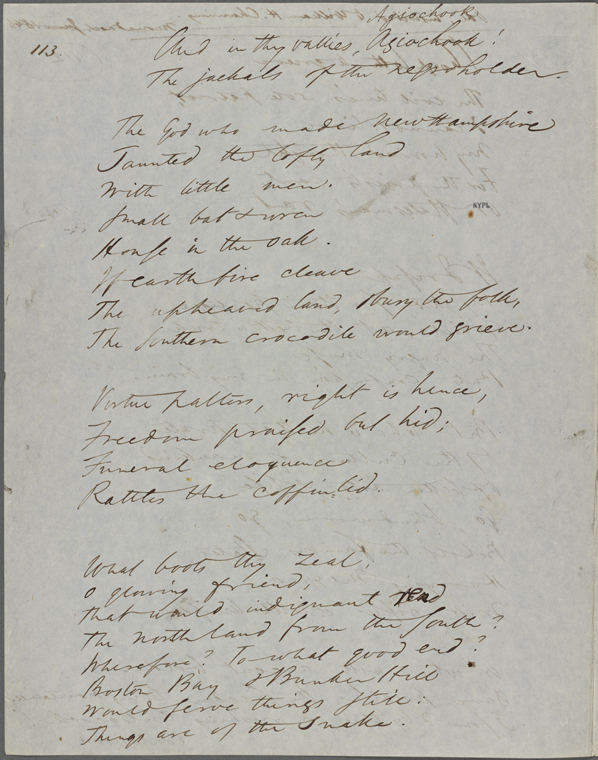 Agiochook
113.
And in thy vallies, Agiochook!
The jackals of the negroholder.
The God who made NewHampshire
Taunted the lofty land
With little men.
Small bat & wren
House in the oak.
If earth fire cleave
The upheaved land, & bury the folk,
The southern crocodile would grieve.
NYPL
Virtue palters, right is hence,
Freedom praised but hid;
Funeral eloquence
Rattles the coffin-lid.
What boots thy zeal,
O glowing friend,
That would indignant rend
The northland from the South?
Wherefore? To what good end?
Boston Bay & Bunker Hill
Would serve things still:
Things are of the snake.